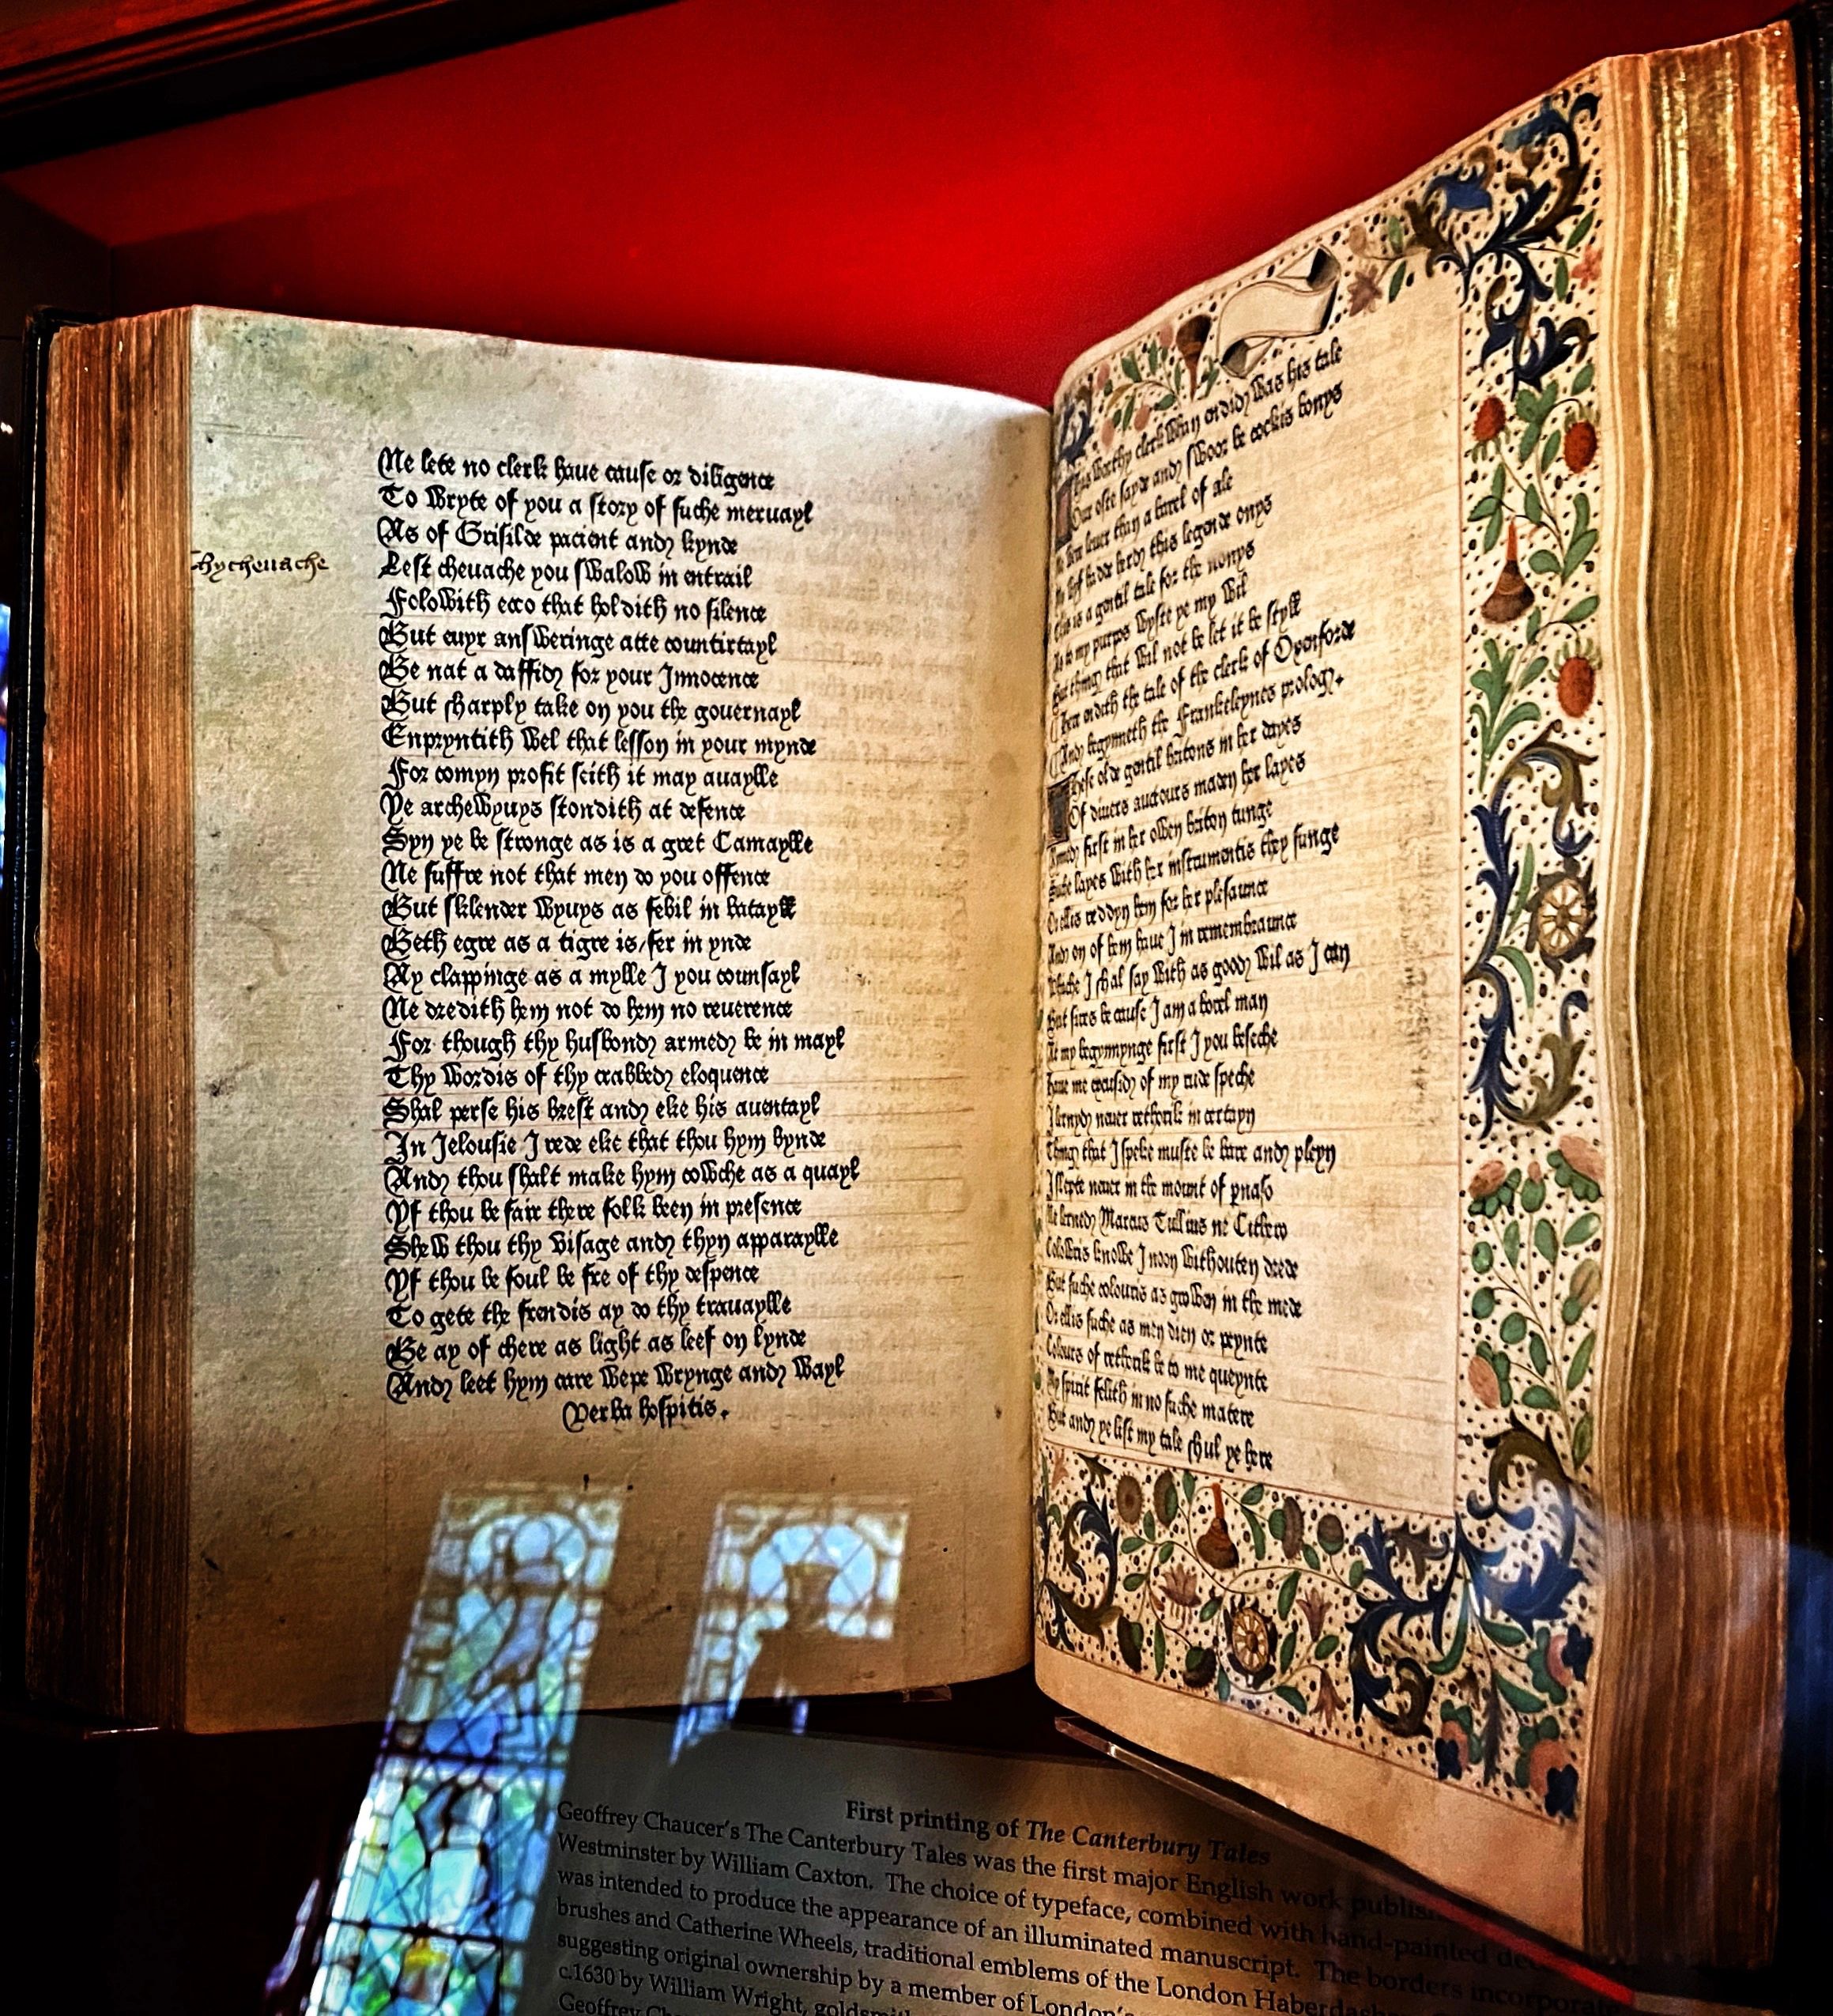 Ne lete no clerk haue cause or diligence
To wryte of you a story of suche meruayl
As of Grisilde pacient and kynde
hycheuache
Lest cheuache you swalow in entrail
Folowith ecco that holdith no silence
But euyr answeringe atte countirtayl
Be nat a daffid for your Innocence
But sharply take on you the gouernayl
Enpryntith wel that lesson in your mynde
For comyn profit sith it may auaylle
Ye archewyuys stondith at defence
Syn ye be stronge as is a gret Camaylle
Ne suffre not that men do you offence
But sklender wyuys as febil in bataylle
Beth egre as a tigre is/fer in ynde
Ay clappinge as a mylle I you counsayl
Ne dredith hem not do hem no reuerence
For though thy husbond armed be in mayl
Thy wordis of thy crabbed eloquence
Shal perse his brest and eke his auentayl
In Jelousie I rede eke that thou hym bynde
And thou shalt make hym cowche as a quayl
Yf thou be fair there folk been in presence
Shew thou thy visage and thyn apparaylle
Yf thou be foul be fre of thy despence
To gete the frendis ay do thy trauaylle
Be ay of chere as light as leef on lynde
And leet hym care wepe wrynge and wayl
Verba hospitis.
This worthy clerk whan endid was his tale
Our oste sayde and swoor be cockis bonys
leuer than a barel of ale
herd this legende onys
This is a gentil tale for the nonys
As to my purpos wyste ye my wil
But thing that wil not be let it be styll
Here endith the tale of the clerk of Oxenforde
And begynneth the Frankeleynes prolog.
These olde gentil britons in her dayes
Of diuers auctours maden her layes
first in her owen briton tunge
Suche layes with her instrumentis they sunge
Or ellis reddyn hem for her plesaunce
And on of hem haue I in remembraunce
Whiche I shal say with as good wil as I can
But sires be cause I am a borel man
At my begynnynge first I you beseche
haue me excusid of my rude speche
I lernyd neuer rethorik in certayn
Thing that I speke muste be bare and pleyn
I slepte neuer in the mount of pnaso
Ne lerned Marcus Tullius ne Cithero
Colowris knowe I noon withouten drede
But suche colouris as growen in the mede
Or ellis suche as men dien or peynte
Colours of rethorik be to me queynte
My spirit felith in no suche matere
But and ye list my tale shul ye here
First printing of The Canterbury Tales
Geoffrey Chaucer's The Canterbury Tales was the first major English work
Westminster by William Caxton. The choice of typeface, combined with hand-painted
was intended to produce the appearance of an illuminated manuscript. The borders incorporate
brushes and Catherine Wheels, traditional emblems of the London
suggesting original ownership by a member of London's
c.1630 by William Wright,
Geoffrey